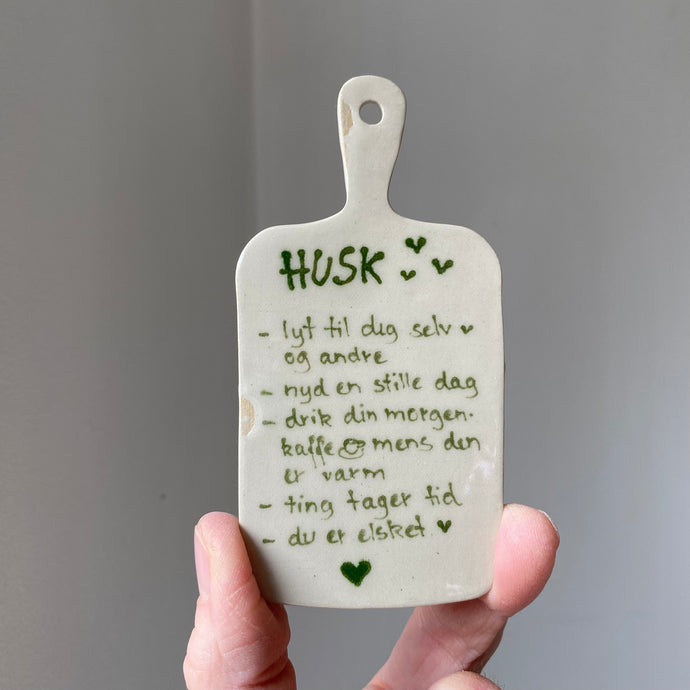 HUSK
- lyt til dig selv
og andre
- nyd en stille dag
- drik din morgen-
kaffe mens den
er varm
- ting tager tid
- du er elsket